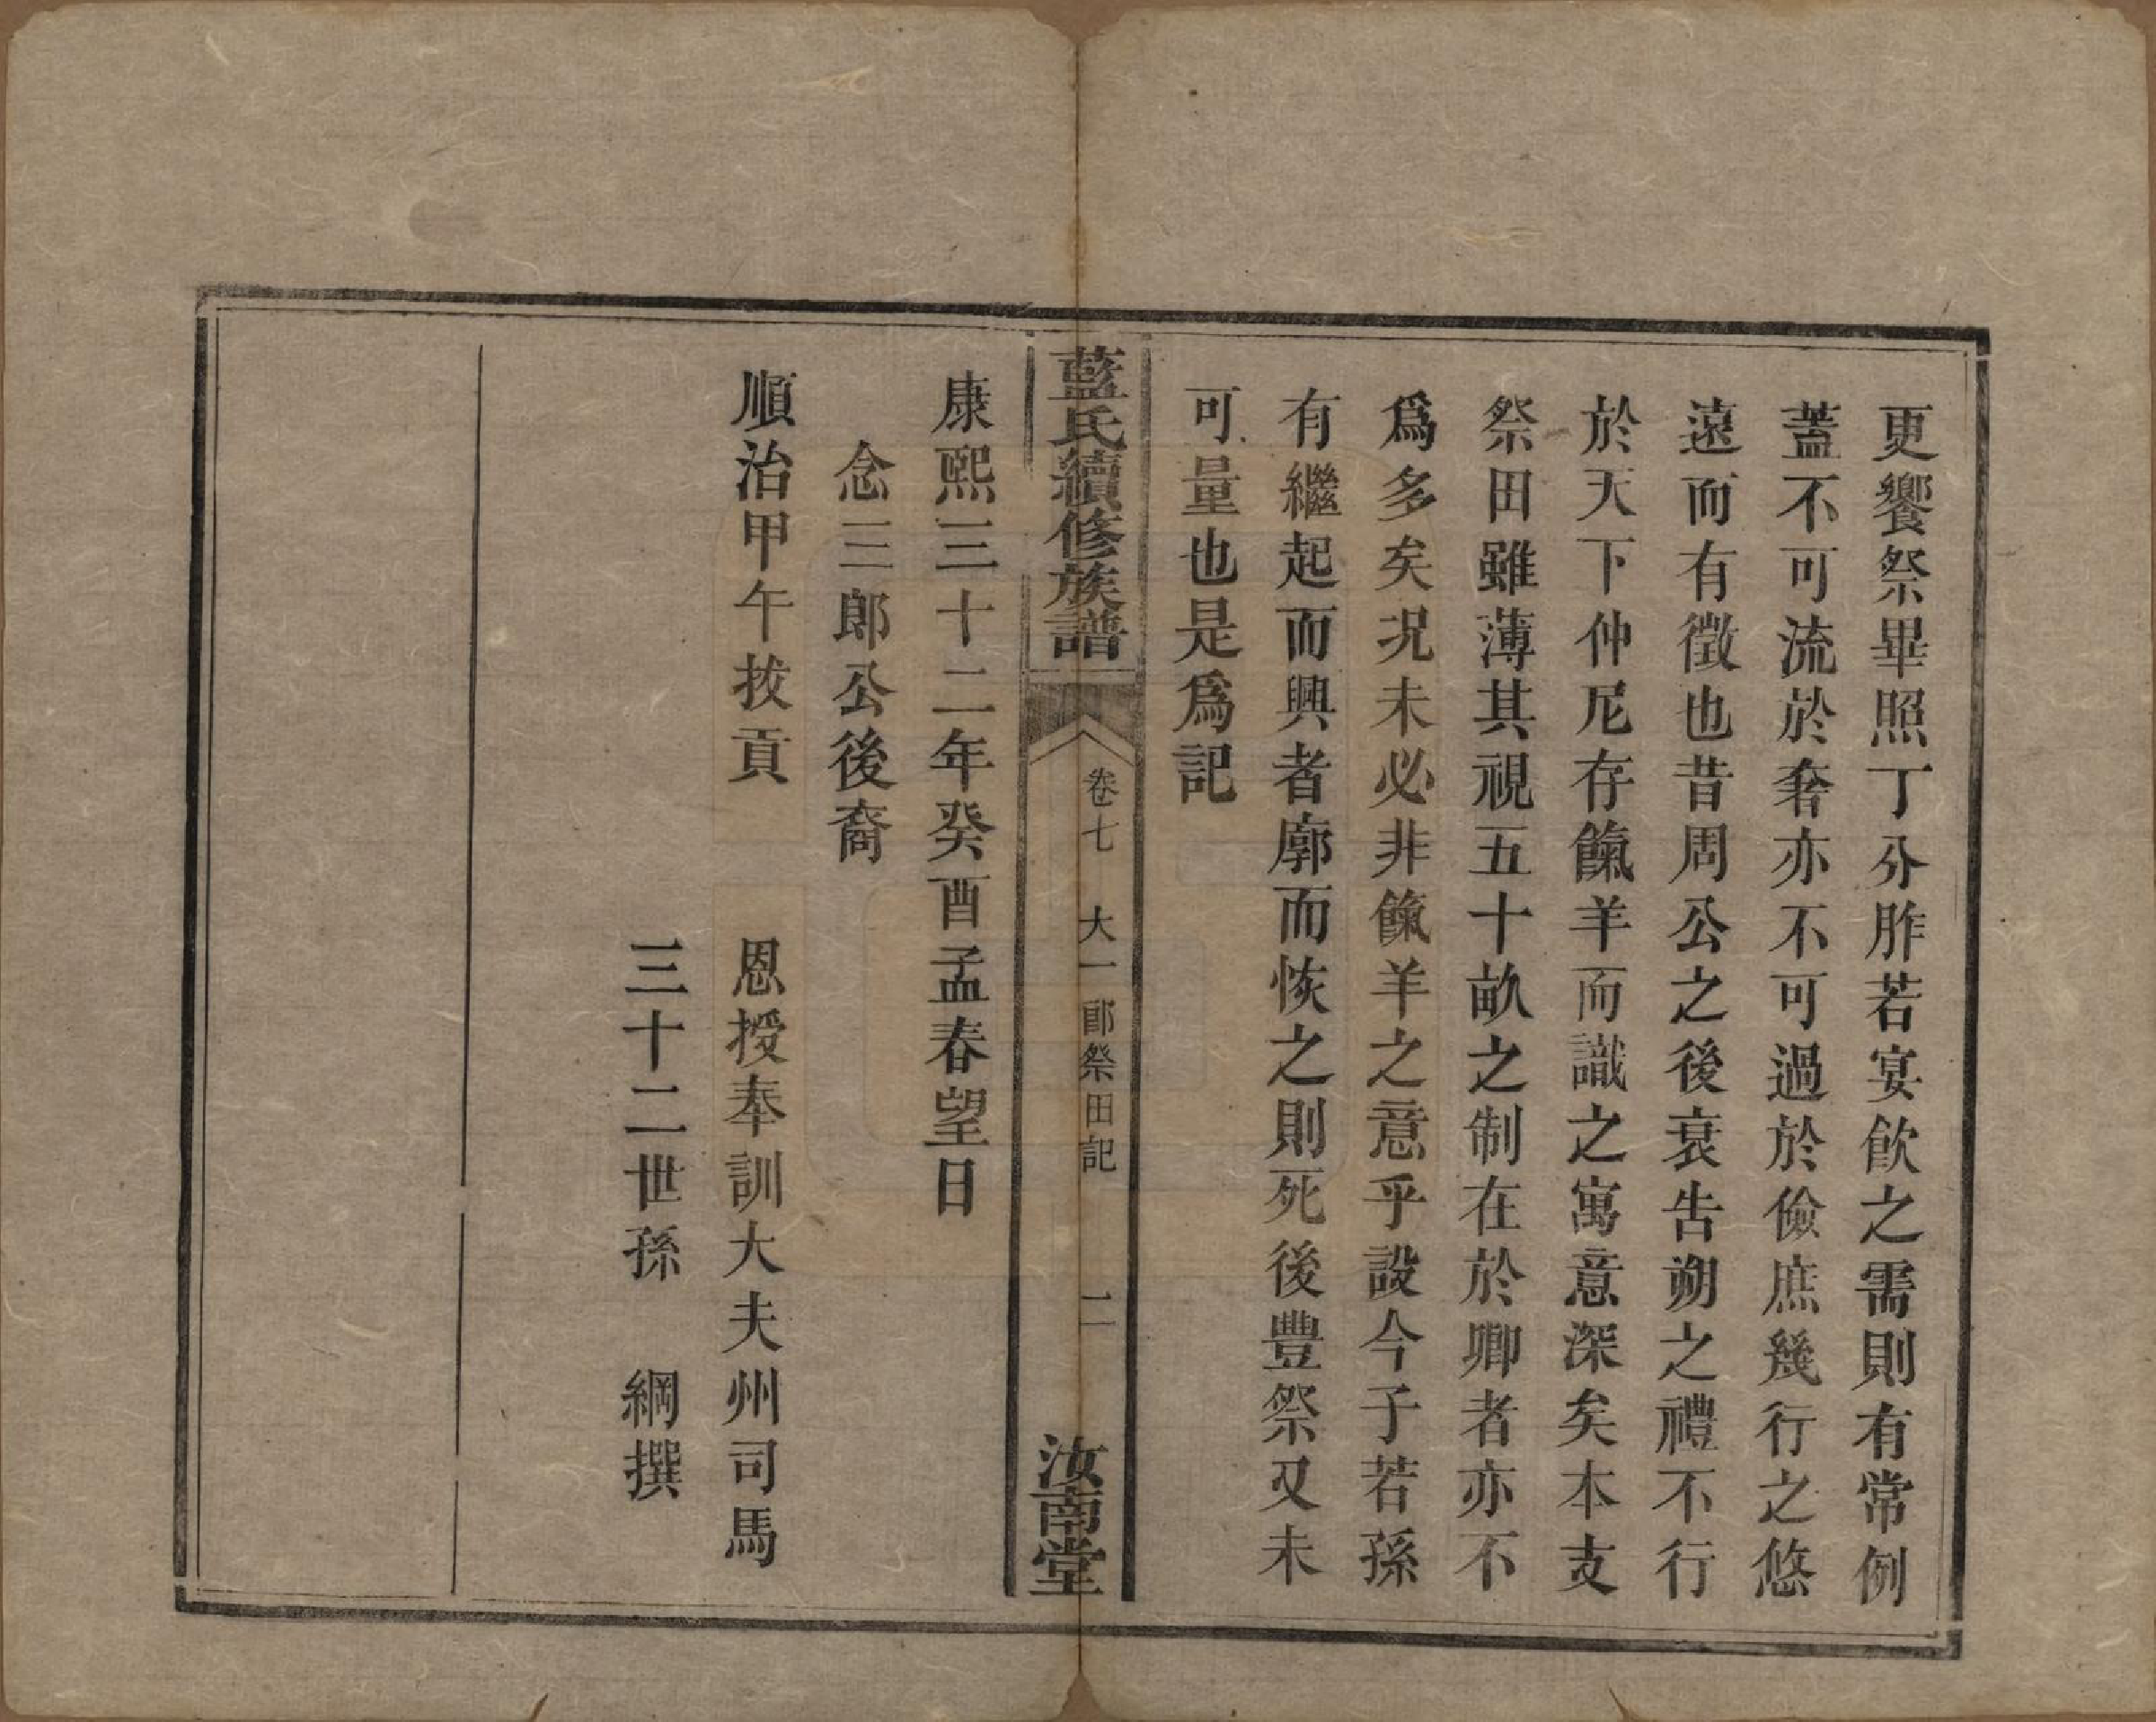 更饗祭畢照丁分胙若宴飮之需則有常例
蓋不可流於奢亦不可過於儉庶幾行之悠
遠而有徵也昔周公之後衰告朔之禮不行
於天下仲尼存餼羊而識之寓意深矣本支
祭田雖薄其視五十畝之制在於卿者亦不
爲多矣况未必非餼羊之意乎設今子若孫
有繼起而興者廓而恢之則死後豐祭又未
可量也是爲記
藍氏續修族譜
卷七　大一郎祭田記　二
汝南堂
康熙三十二年癸酉孟春望日
念三郎公後裔
順治甲午拔貢　恩授奉訓大夫州司馬
三十二世孫　綱撰